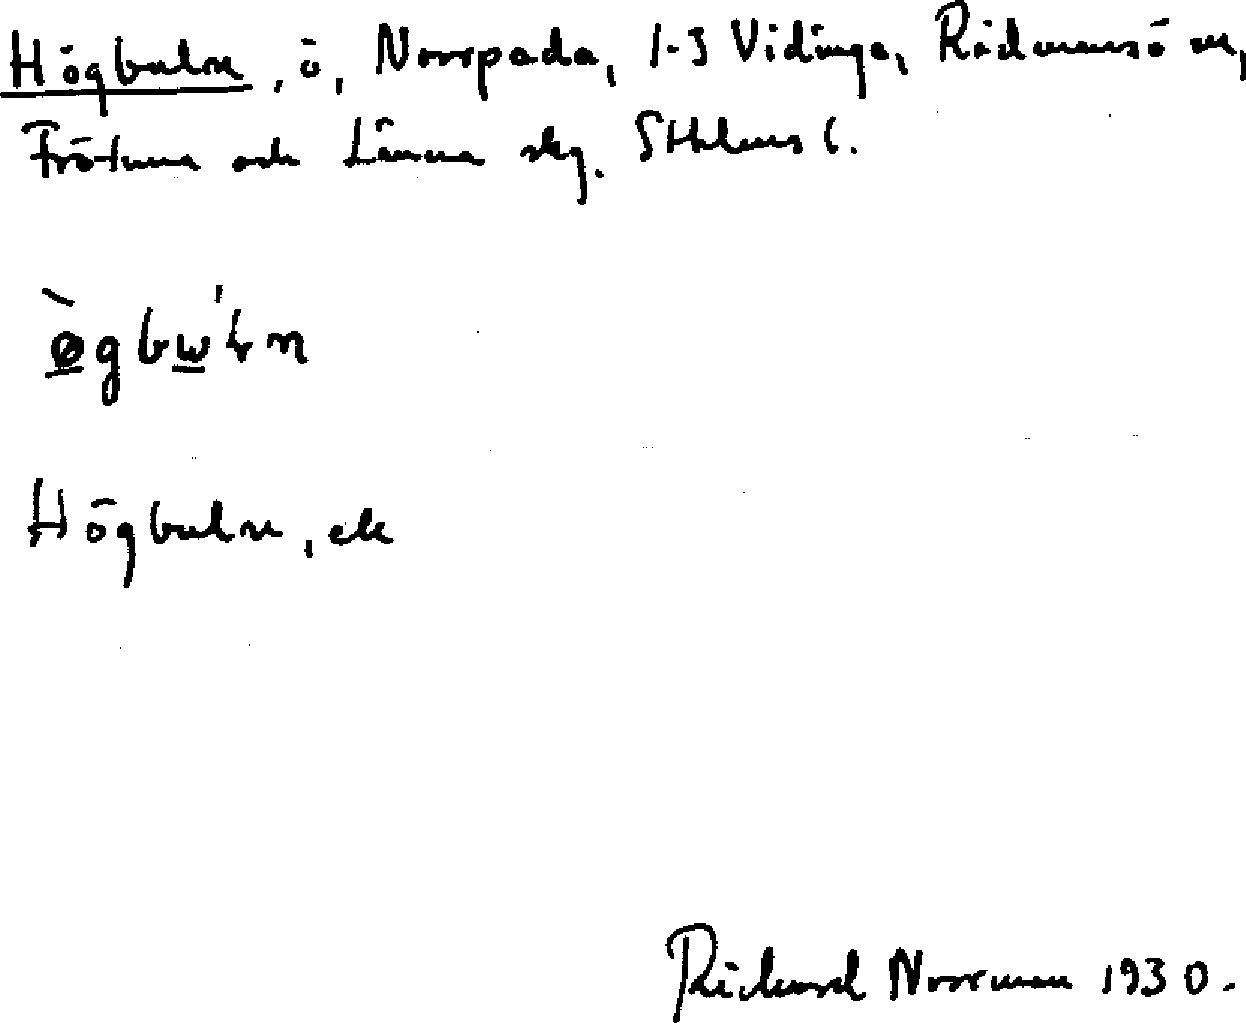 Högbalen, ö, Norrpada, 1-3 Vidinge, Rådmansö sn,
Frötuna och Länna skg. Sthlms l.
Högbalen, ek
Richard Norrman 1930.